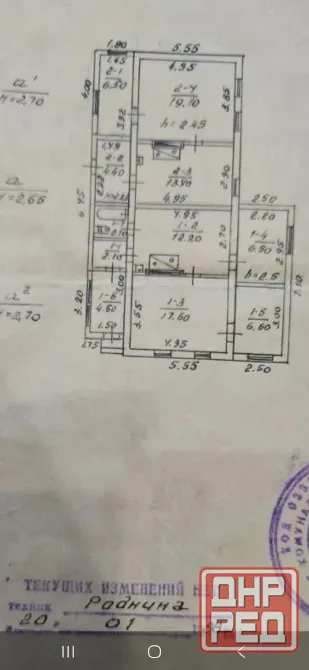 1.80
5.55
1.45
2-1
6.30
4.00
3.92
4.95
2-4
19.10
3.85
h=2.45
а¹
h=2,70
1.49
2-2
2-3
4.95
2.90
6.45
а
2.65
4.95
1-2
2.70
2.50
2.20
1-4
6.50
2.95
h=2.5
7.10
а²
2,70
3.20
1-6
4.50
1.50
3.00
3.55
1-3
17.60
4.95
5.55
1-5
6.60
3.00
2.50
1.75
ТЕКУЩИХ ИЗМЕНЕНИЙ НЕТ
техник Раднина
20 01
КОД 033
КОМУНА
ДНР
РЕД